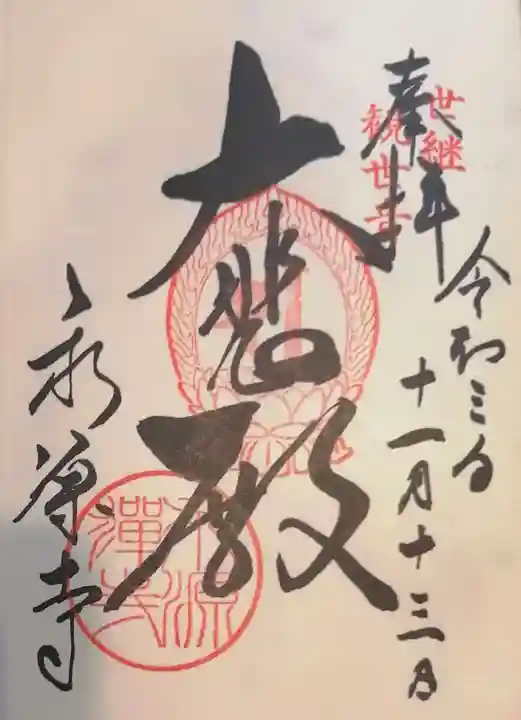 奉拝
世継
観世音
令和三年
十一月十三日
大悲殿
永源寺